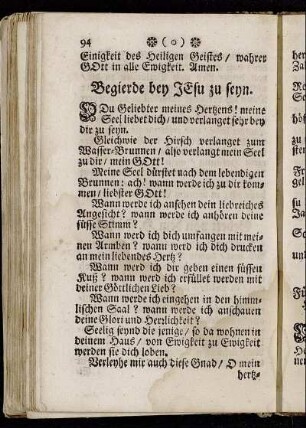 94 ❀ ( o ) ❀
Einigkeit des Heiligen Geistes / wahrer
GOtt in alle Ewigkeit. Amen.
Begierde bey JEsu zu seyn.
O Du Geliebter meines Hertzens! meine
Seel liebet dich / und verlanget sehr bey
dir zu seyn.
Gleichwie der Hirsch verlanget zum
Wasser-Brunnen / also verlangt mein Seel
zu dir / mein GOtt!
Meine Seel dürstet nach dem lebendigen
Brunnen: ach! wann werde ich zu dir kom-
men / liebster GOtt!
Wann werde ich ansehen dein liebreiches
Angesicht? wann werde ich anhören deine
süsse Stimm?
Wann werd ich dich umfangen mit mei-
nen Armben? wann werd ich dich drucken
an mein liebendes Hertz?
Wann werd ich dir geben einen süssen
Kuß? wann werd ich erfüllet werden mit
deiner Göttlichen Lieb?
Wann werde ich eingehen in den himm-
lischen Saal? wann werde ich anschauen
deine Glori und Herrlichkeit?
Seelig seynd die jenige / so da wohnen in
deinem Haus / von Ewigkeit zu Ewigkeit
werden sie dich loben.
Verleyhe mir auch diese Gnad / O mein
hertz-